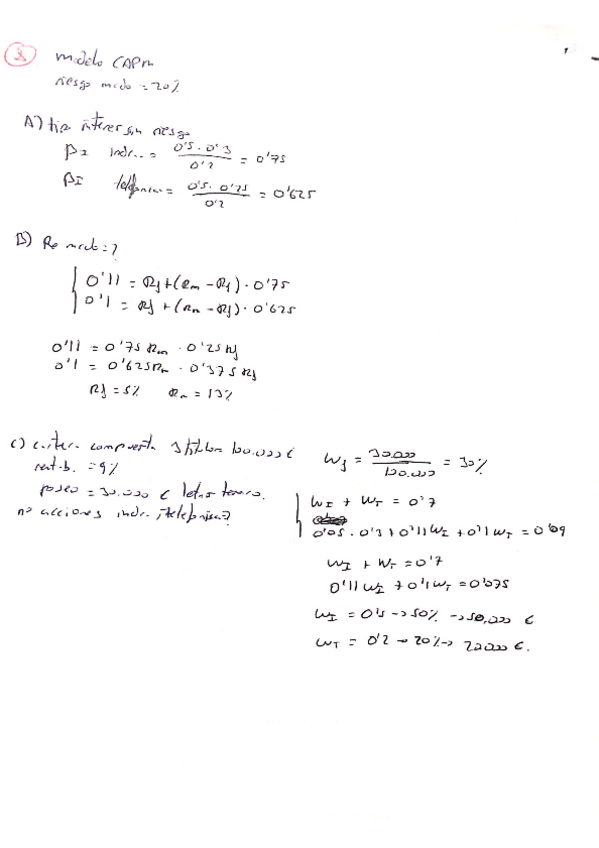 8
modelo CAPM
riesgo mcdo = 20%
A) tipo interes sin riesgo
βI indr... = 0'5 · 0'3 / 0'2 = 0'75
βI telefonica = 0'5 · 0'25 / 0'2 = 0'625
B) Re mcdo = ?
0'11 = Rf + (Rm - Rf) · 0'75
0'1 = Rf + (Rm - Rf) · 0'625
0'11 = 0'75 Rm · 0'25 Rf
0'1 = 0'625 Rm · 0'375 Rf
Rf = 5% Rm = 13%
c) cartera compuesta 3 titulos 100.000 €
rentb. = 9%
poseo = 30.000 € letras tesoro.
nº acciones indr. i telefonica?
Wf = 30.000 / 100.000 = 30%
WI + WT = 0'7
0'05 · 0'3 + 0'11 WI + 0'1 WT = 0'09
WI + WT = 0'7
0'11 WI + 0'1 WT = 0'075
WI = 0'5 → 50% → 50.000 €
WT = 0'2 → 20% → 20.000 €.